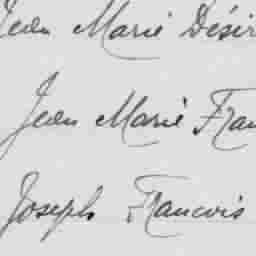 Jean Marie Désir
Jean Marie Fran
Joseph Francois